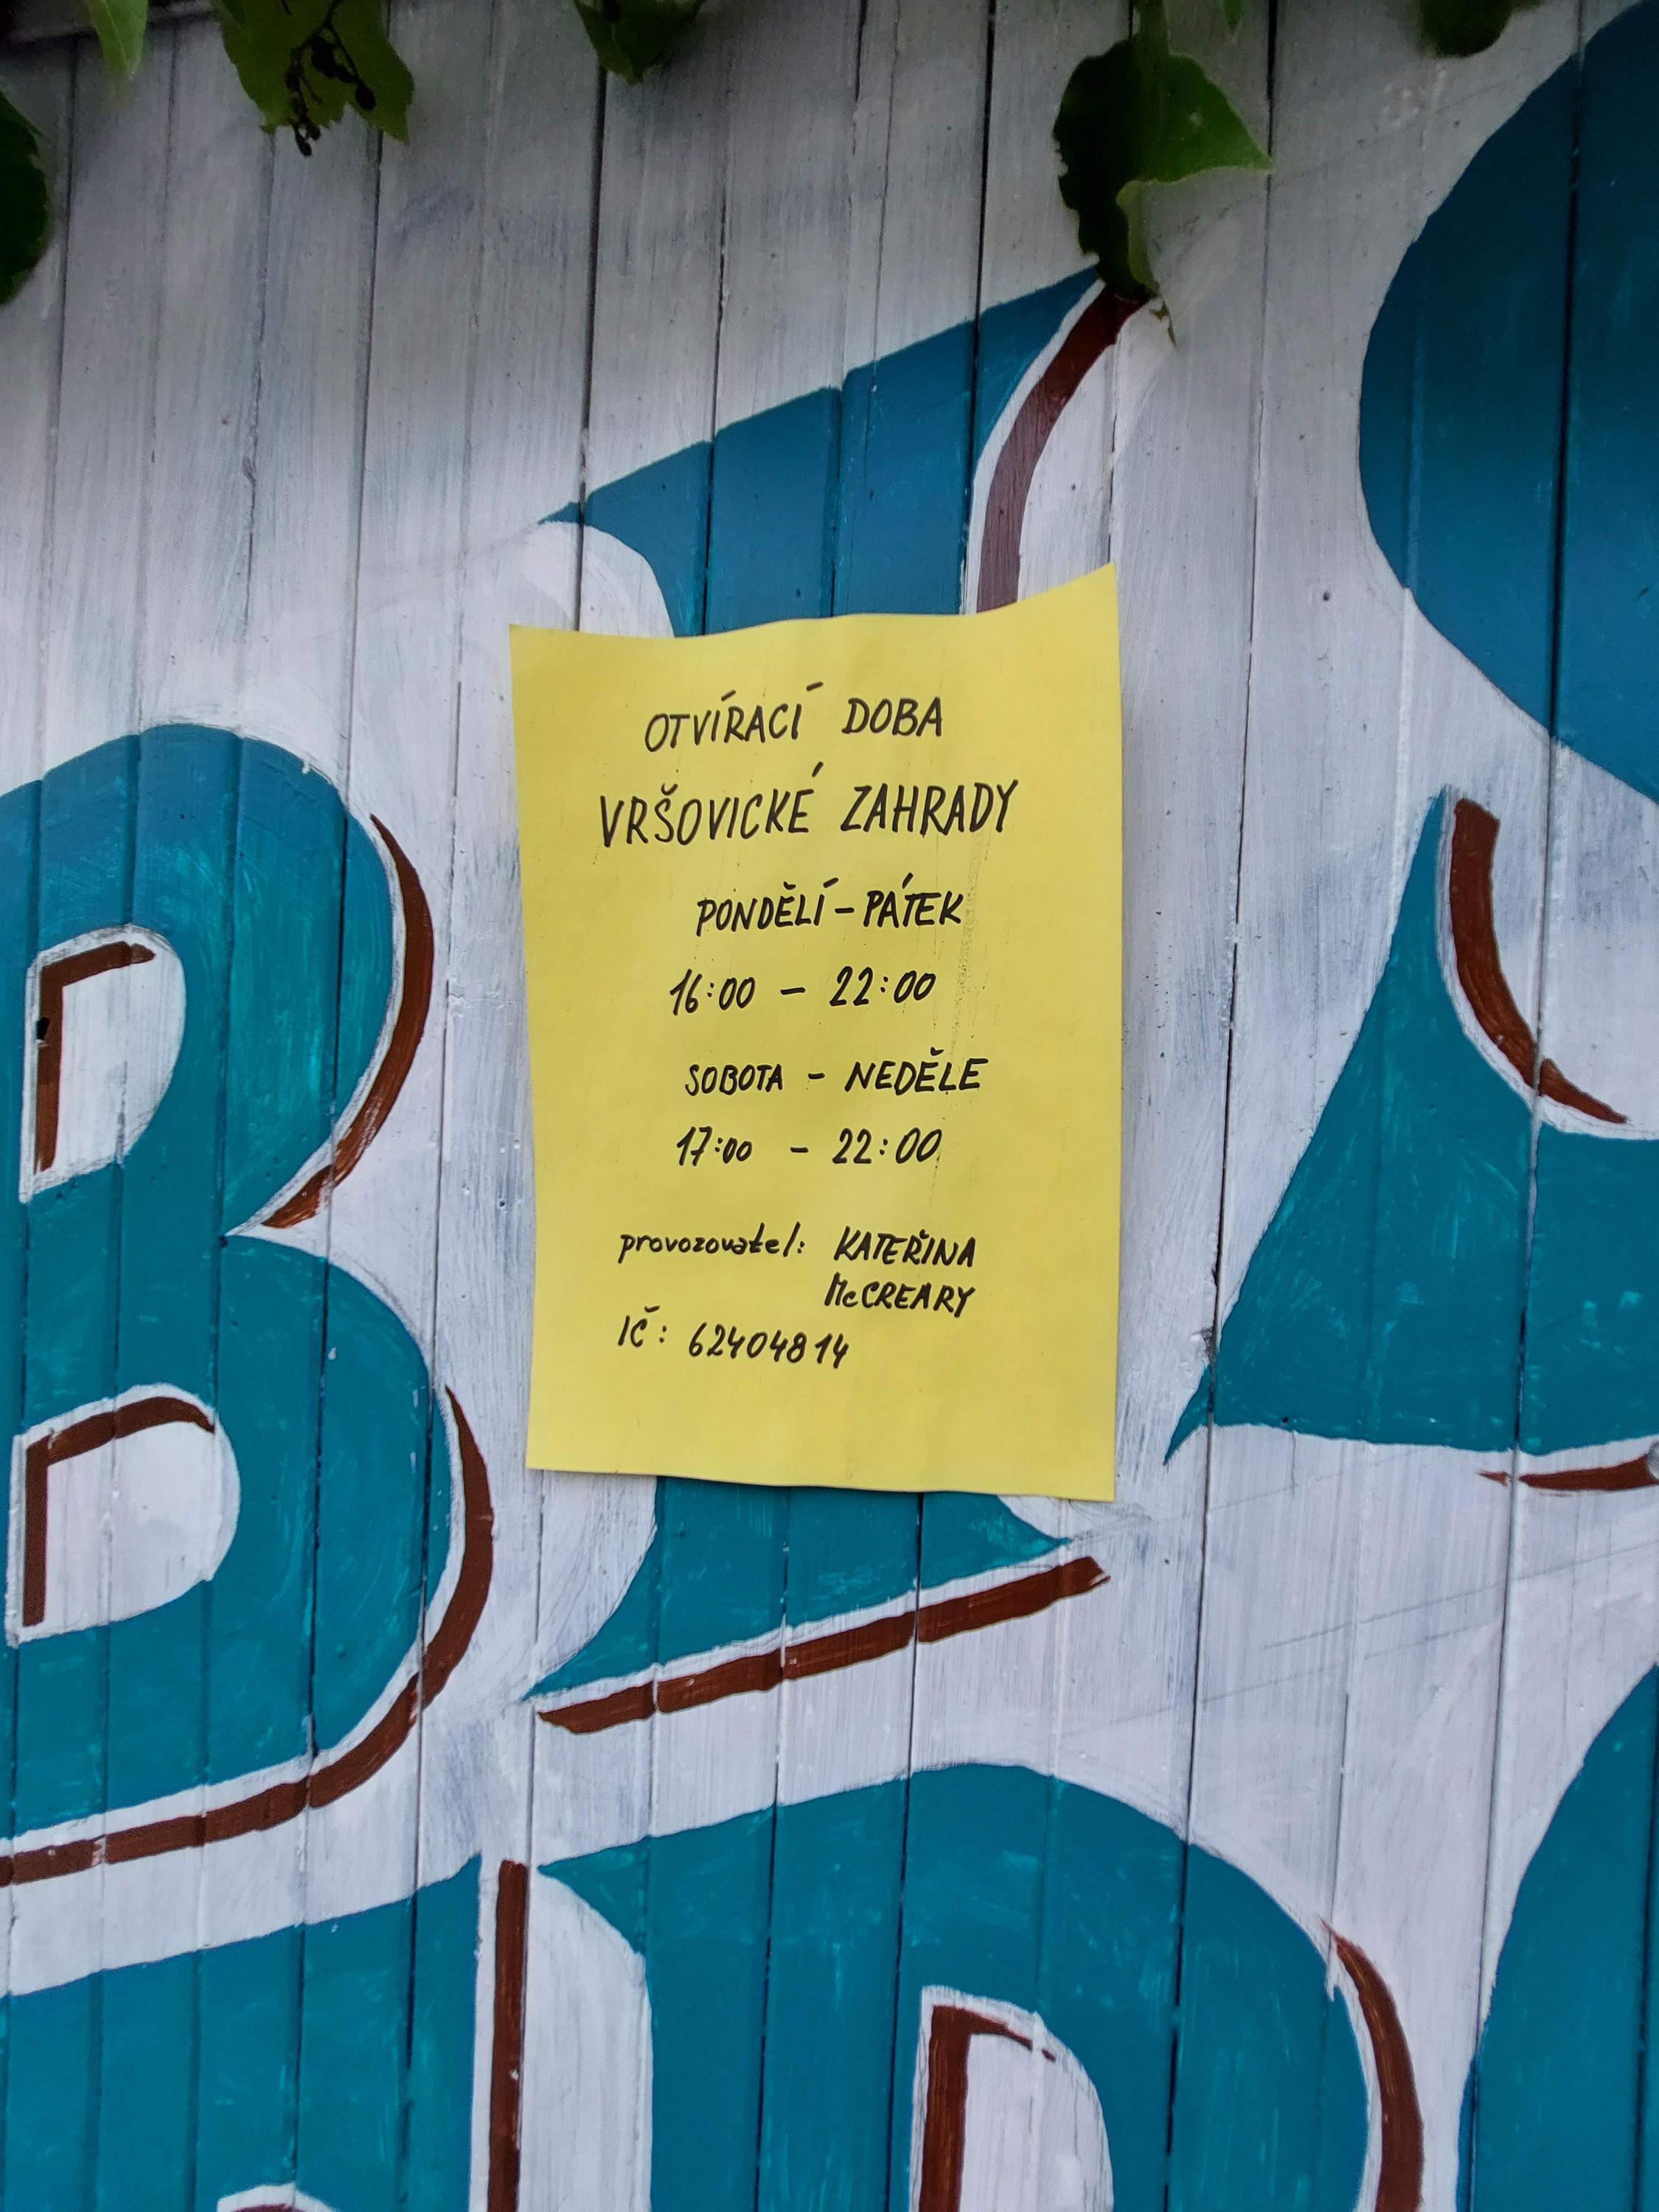 OTVÍRACÍ DOBA
VRŠOVICKÉ ZAHRADY
PONDĚLÍ – PÁTEK
16:00 – 22:00
SOBOTA – NEDĚLE
17:00 – 22:00
provozovatel: KATEŘINA
McCREARY
IČ: 62404814